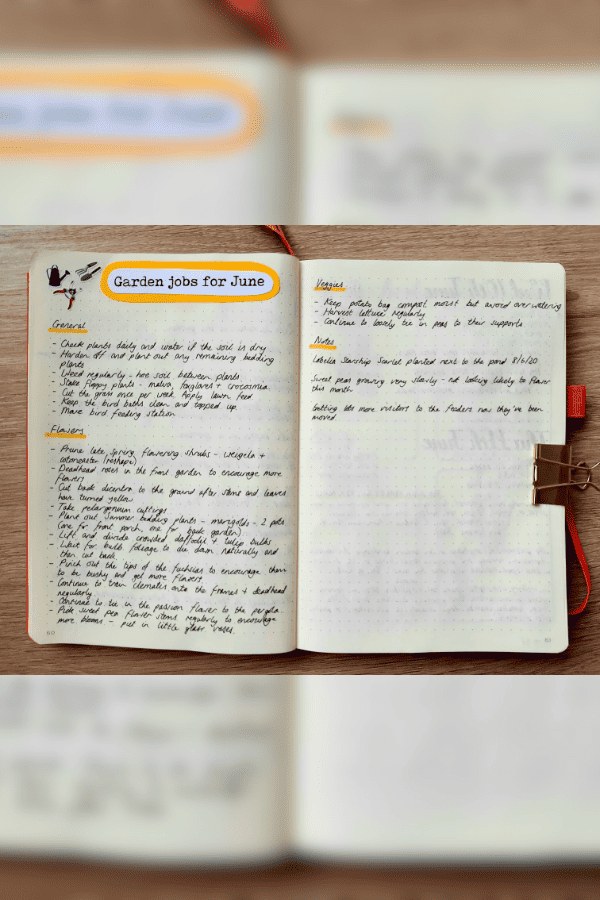 Garden jobs for June
General
- Check plants daily and water if the soil is dry
- Harden off and plant out any remaining bedding
plants
- Weed regularly - hoe soil between plants
- Stake floppy plants - malva, foxgloves + crocosmia
- Cut the grass once per week. Apply lawn feed
- Keep the bird baths clean and topped up
- Move bird feeding station
Flowers
- Prune late spring flowering shrubs - weigela +
cotoneaster (reshape)
- Deadhead roses in the front garden to encourage more
flowers
- Cut back dicentra to the ground after stems and leaves
have turned yellow
- Take pelargonium cuttings
- Plant out summer bedding plants - marigolds - 2 pots
(one for front porch, one for back garden)
- Lift and divide crowded daffodil + tulip bulbs
- Wait for bulb foliage to die down naturally and
then cut back
- Pinch out the tips of the fuchsias to encourage them
to be bushy and get more flowers
- Continue to train clematis onto the frames + deadhead
regularly
- Continue to tie in the passion flower to the pergola
- Pick sweet pea flower stems regularly to encourage
more blooms - put in little glass vases
60
Veggies
- Keep potato bag compost moist but avoid overwatering
- Harvest lettuce regularly
- Continue to loosely tie in peas to their supports
Notes
Lobelia Starship Scarlet planted next to the pond 8/6/20
Sweet peas growing very slowly - not looking likely to flower
this month
Getting lots more visitors to the feeders now they've been
moved